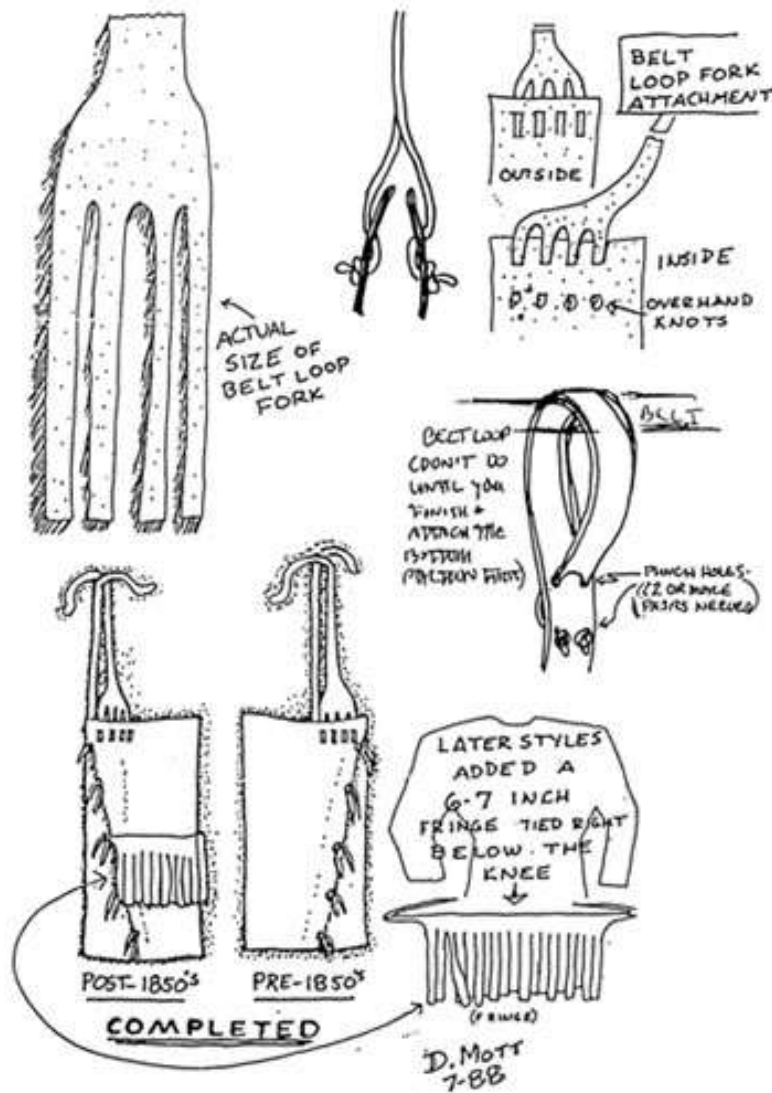 BELT
LOOP FORK
ATTACHMENT
OUTSIDE
INSIDE
OVERHAND
KNOTS
ACTUAL
SIZE OF
BELT LOOP
FORK
BELT
BELT LOOP
(DON'T DO
UNTIL YOU
FINISH &
ATTACH THE
BOTTOM
FIRST)
PUNCH HOLES-
(2 OR MORE
PAIRS NEEDED)
LATER STYLES
ADDED A
6-7 INCH
FRINGE TIED RIGHT
BELOW THE
KNEE
POST-1850's
PRE-1850's
COMPLETED
(FRINGE)
D. MOTT
7-88